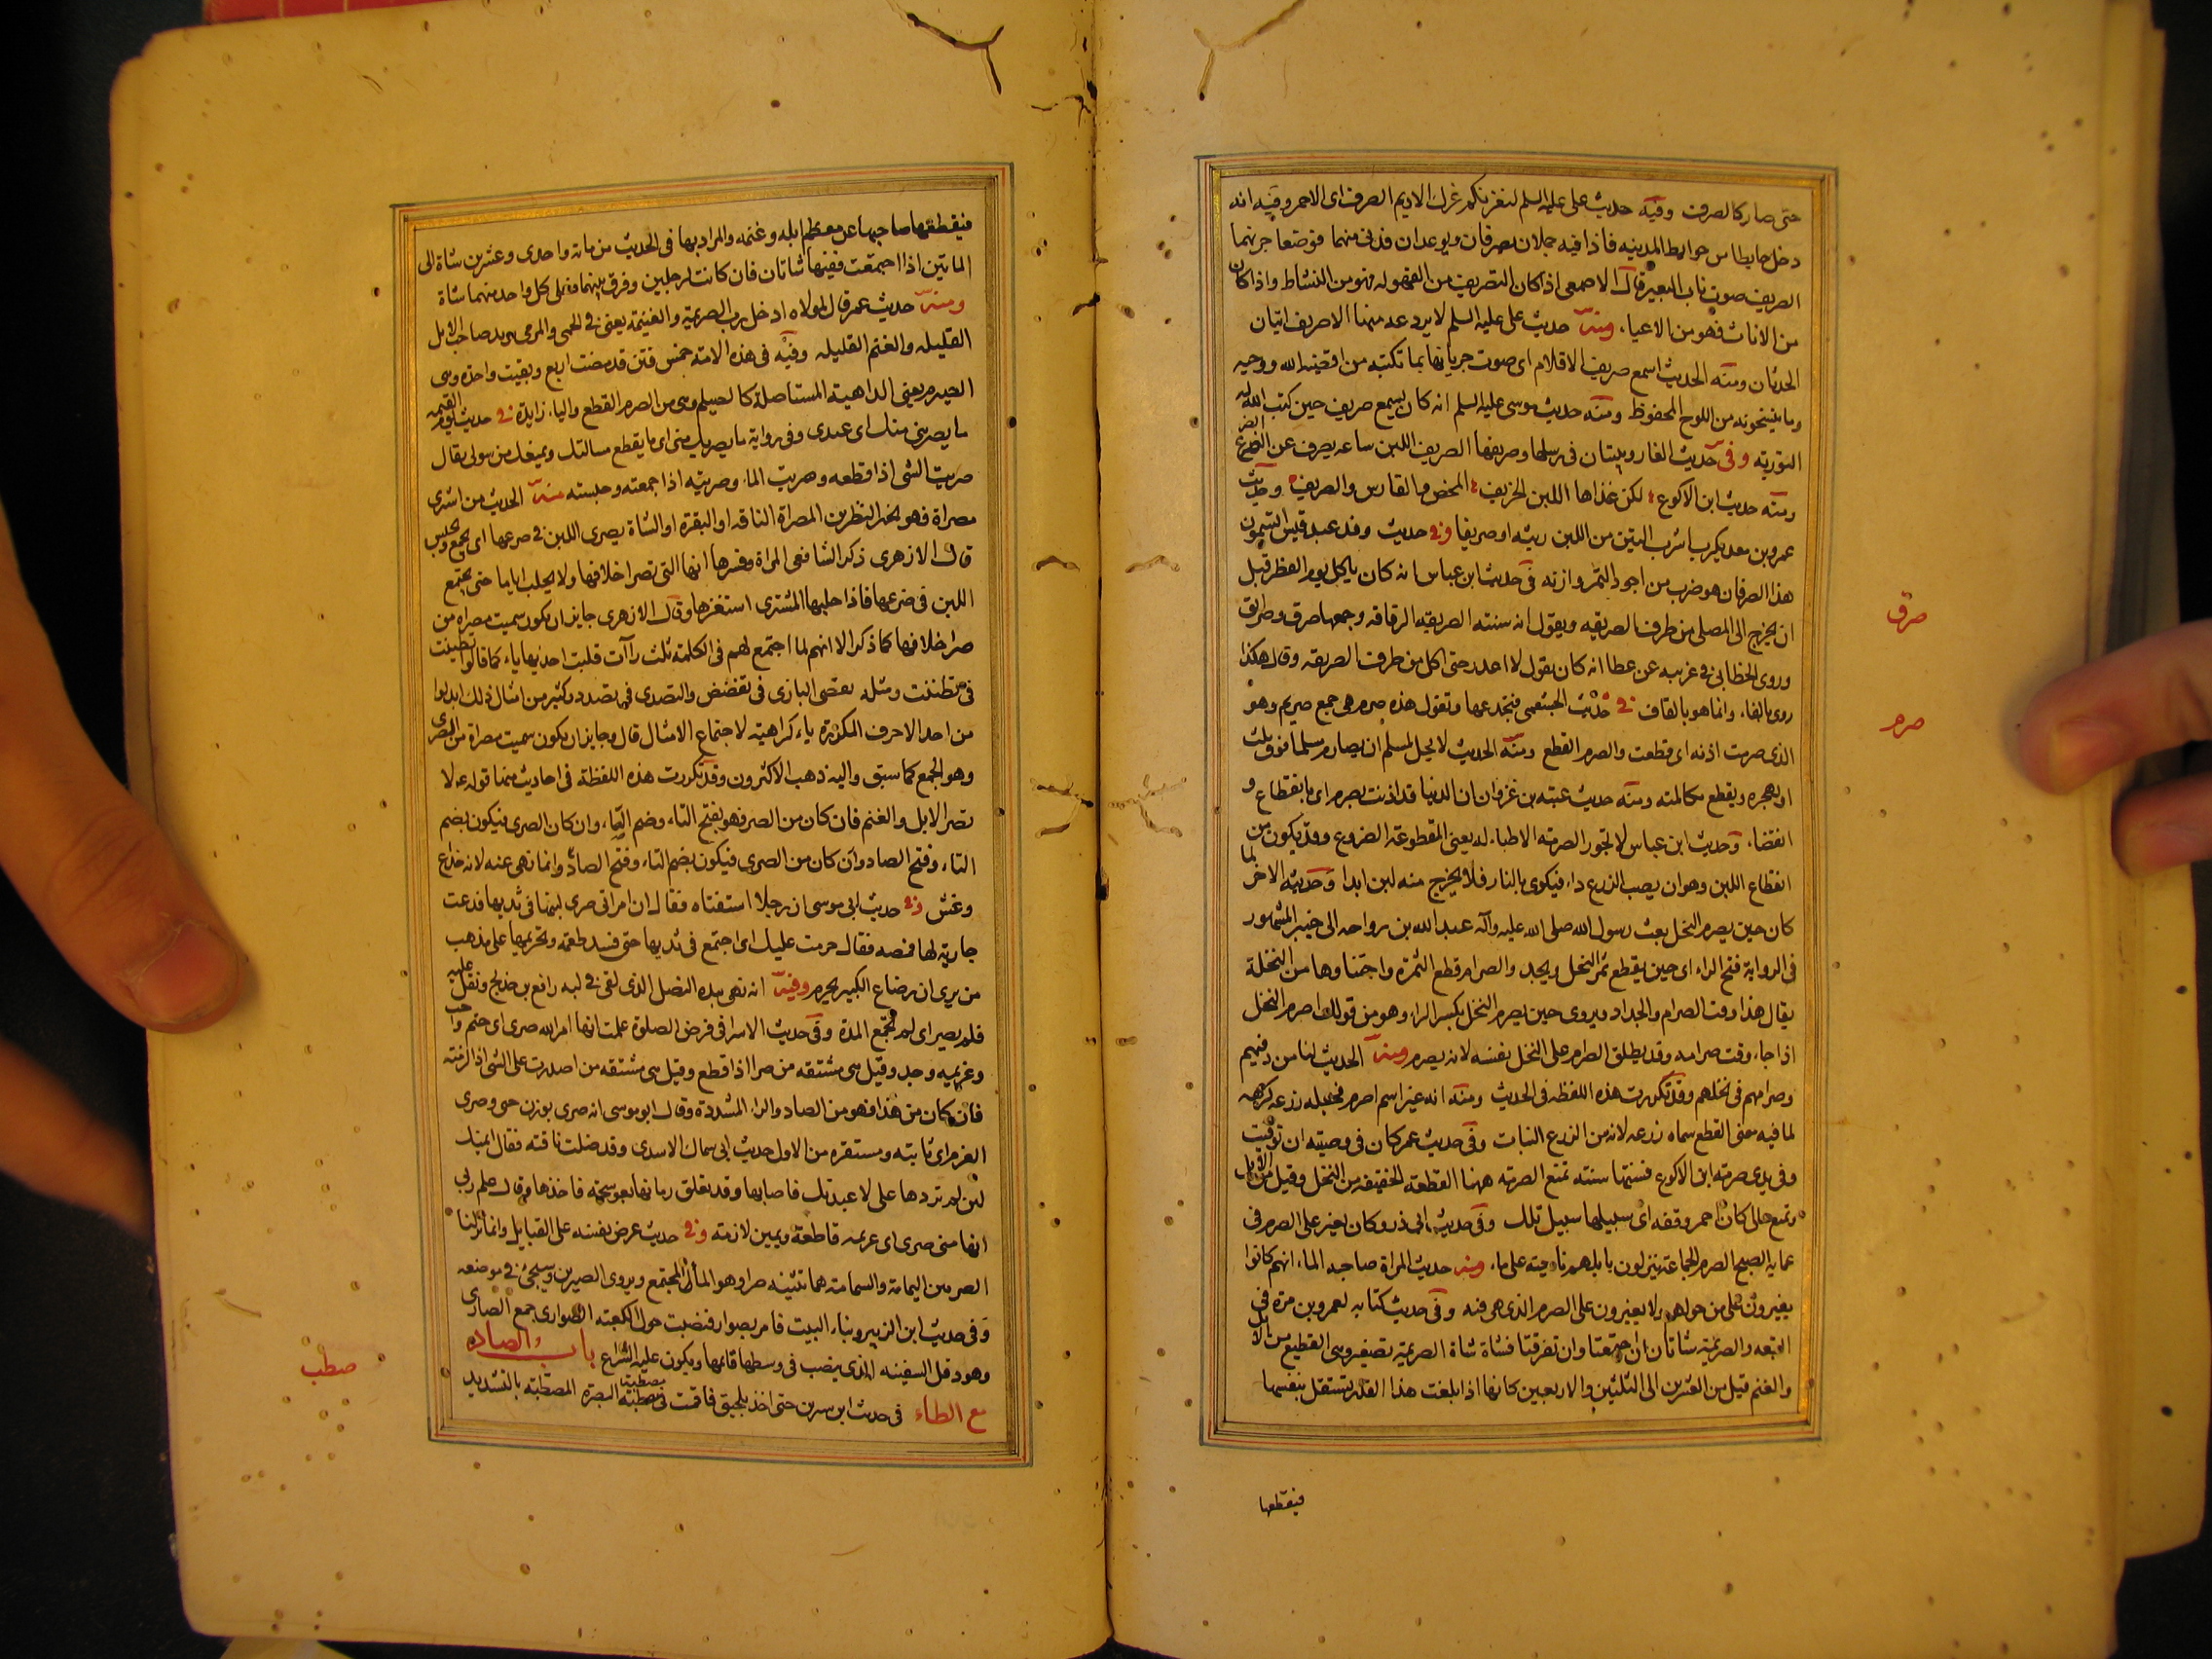 حتى صار كالصرف وفيه حديث على عليه السلم لتعركنكم عرك الاديم الصرف اى الاحمر وفيه انه
دخل حايطا من حوايط المدينه فاذا فيه جملان يصرفان ويوعدان فدنى منهما فوضعا جرنهما
الصريف صوت ناب البعير قال الاصمعى اذا كان الصريف من الفحوله فهو من النشاط واذا كان
من الاناث فهو من الاعياء ومنه حديث على عليه السلم لا يروعه منهما الا صريف انياب
الحدثان ومنه الحديث اسمع صريف الاقلام اى صوت جريانها بما تكتبه من اقضية الله ووحيه
وما ينسخونه من اللوح المحفوظ ومنه حديث موسى عليه السلم انه كان يسمع صريف حين كتب الله له
التوريه وفى حديث الغار ويبيتان فى رسلها وصريفها الصريف اللبن ساعه يصرف عن الضرع
ومنه حديث ابن الاكوع لكن غذاها اللبن الخريف المخض والقارس والصريف وحديث
عمرو بن معديكرب اشرب التبن من اللبن رثيه او صريفا وفى حديث وفد عبد قيس اتسمون
هذا الصرفان هو ضرب من اجود التمر وازنه فى حديث ابن عباس انه كان ياكل يوم الفطر قبل
ان يخرج الى المصلى من طرف الصريقه ويقول انه سنته الصريقه الرقاقه وجمعها صرق وصريق
وروى الخطابى فى غريبه عن عطا انه كان يقول لا اغدو حتى اكل من طرف الصريفه وقال هكذا
روى بالفاء وانما هو بالقاف فى حديث الجشمى فتجدعها وتقول هذه صرم هى جمع صريم وهو
الذى صرمت اذنه اى قطعت والصرم القطع ومنه الحديث لا يحل لمسلم ان يصارم مسلما فوق ثلث
اى يهجره ويقطع مكالمته ومنه حديث عتبه بن غزوان ان الدنيا قد اذنت بصرم اى بانقطاع و
انقضاء وحديث ابن عباس لا تجوز الصرمه الاطباء يعنى المقطوعة الضروع وقد يكون من
انقطاع اللبن وهو ان يصيب الضرع داء فيكوى بالنار فلا يخرج منه لبن ابدا وحديثه الاخر لما
كان حين يصرم النخل بعث رسول الله صلى الله عليه وآله عبد الله بن رواحه الى خيبر المشهور
فى الروايه فتح الراء اى حين يقطع ثمر النخل ويجد والصرام قطع الثمرة واجتناوها من النخلة
يقال هذا وقت الصرام والجداد ويروى حين يصرم النخل بكسر الراء وهو من قولك اصرم النخل
اذا جاء وقت صرامه وقد يطلق الصرام على النخل نفسه لانه يصرم ومنه الحديث لنا من دفئهم
وصرامهم فى نخلهم وقد تكررت هذه اللفظه فى الحديث ومنه انه غير اسم اصرم فجعله زرعه كرهه
لما فيه معنى القطع سماه زرعه لانه من الزرع النبات وفى حديث عمر كان فى وصيته ان توفيت
وفى يدى صرمه ابن الاكوع فسنتها سنته ثمغ الصرمه ههنا القطعة الخفيفه من النخل وقيل من الابل
وثمغ مال كان لعمر وقفه اى سبيلها سبيل تلك وفى حديث ابى ذر وكان يغير على الصرم فى
عمايه الصبح الصرم الجماعة ينزلون بابلهم ناحيته على ماء ومنه حديث المراة صاحبه الماء انهم كانوا
يغيرون على من حولهم ولا يغيرون على الصرم الذى هى فيه وفى حديث كتابه لعمرو بن مرة فى
التيعه والصريمة شاتان ان اجتمعتا وان تفرقتا فشاة شاة الصريمه تصغير وهى القطيع من الابل
والغنم قيل من العشرين الى الثلثين والاربعين كانها اذا بلغت هذا القدر تستقل بنفسها
فيقطعها
صرق
صرم
فيقطعها صاحبها عن معظم ابله وغنمه والمراد بها فى الحديث من ماته واحدى وعشرين شاة الى
الماتين اذا اجتمعت ففيها شاتان فان كانت لرجلين وفرق بينهما فعلى كل واحد منهما شاة
ومنه حديث عمر قال لمولاه ادخل رب الصريمة والغنيمة يعنى فى الحمى والمرعى يريد صاحب الابل
القليله والغنم القليله وفيه فى هذه الامة خمس فتن قد مضت اربع وبقيت واحدة وهى
الصيرم يعنى الداهية المستاصلة كالصيلم وهى من الصرم القطع والياء زايدة فى حديث يوم القيمه
ما يصرينى منك اى عبدى وفى رواية ما يصريك منى اى ما يقطع مسالتك ويمنعك من سولى يقال
صريت الشى اذا قطعه وصريت الماء وصريته اذا جمعته وحبسته منه الحديث من اشترى
مصراة فهو بخير النظرين المصراة الناقه او البقره او الشاة يصرى اللبن فى ضرعها اى يجمع ويحبس
قال الازهرى ذكر الشافعى المراة وفسرها انها التى تصر اخلافها ولا يحلب اياما حتى يجتمع
اللبن فى ضرعها فاذا حلبها المشترى استغزرها وقال الازهرى جايز ان يكون سميت مصراه من
صر اخلافها كما ذكر الا انهم لما اجتمع لهم فى الكلمته ثلث راآت قلبت احديها ياء كما قالوا تظنيت
فى تظننت ومثله تقضى البازى فى تقضض والتصدى فى تصدد وكثير من امثال ذلك ابدلوا
من احد الاحرف المكررة ياء كراهية لاجتماع الامثال قال وجايز ان يكون سميت مصراة من الصرى
وهو الجمع كما سبق واليه ذهب الاكثرون وقد تكررت هذه اللفظة فى احاديث منها قوله عه لا
تصر الابل والغنم فان كان من الصر فهو بفتح التاء وضم الصاد وان كان الصرى فيكون بضم
التاء وفتح الصاد وان كان من الصرى فيكون بضم التاء وفتح الصاد وانما نهى عنه لانه خداع
وغش وفى حديث ابى موسى ان رجلا استفتاه فقال ان امراتى صرى لبنها فى ثديها فدعت
جارية لها فمصه فقال حرمت عليك اى اجتمع فى ثديها حتى فسد طعمه وتحريمها على مذهب
من يرى ان رضاع الكبير يحرم وفيه انه نفى بيده النصل الذى لقى فى لبه رافع بن خديج وتفل عليه
فلم يصر اى لم تجمع المدة وفى حديث الاسرا فى فرض الصلوة علمت انها امر الله صرى اى حتم واجب
وعزيمه وجد وقيل هى مشتقه من صرا اذا قطع وقيل هى مشتقه من اصررت على الشى اذا لزمته
فان كان من هذا فهو من الصاد والراء المشددة وقال ابو موسى انه صرى بوزن حى وصرى
العزم اى ثابته ومستقره من الاول حديث ابى سماك الاسدى وقد ضلت ناقته فقال ايمنك
لئن لم تردها على لا عبدتك فاصابها وقد تعلق زمامها بعوسجة فاخذها وقال علم ربى
انها منى صرى اى عزيمه قاطعة ويمين لازمه وفى حديث عرض نفسه على القبايل وانما نزلنا
الصريين اليمامة والسمامة هما تثنيه صرا وهو الماء المجتمع ويروى الصيرين وسيجئ فى موضعه
وفى حديث ابن الزبير وبناء البيت فامر بصوار فنصبت حول الكعبته الصوارى جمع الصارى
وهو دقل السفينه الذى ينصب فى وسطها قايما ويكون عليه الشراع باب الصاد
مع الطاء فى حديث ابن سيرين حتى اخذ بلحيتى فاقمت فى مصطبة البصرة المصطبه بالتشديد
صطب